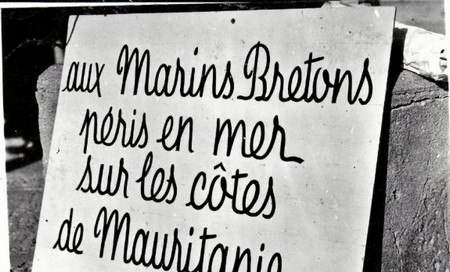 aux Marins Bretons
péris en mer
sur les côtes
de Mauritanie